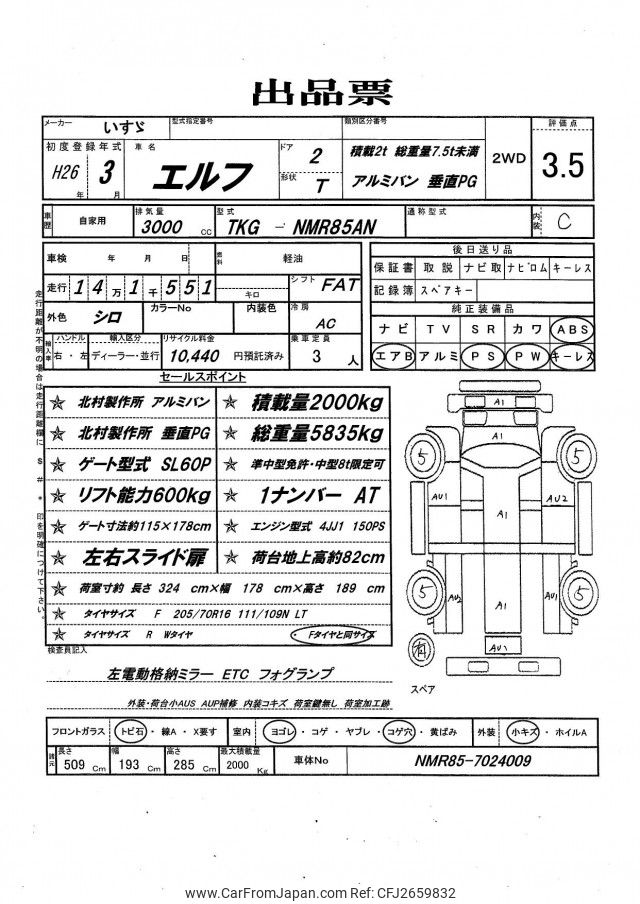 出品票
メーカー いすゞ 型式指定番号 類別区分番号 評価点
初度登録年式 車名 ドア 2 積載2t 総重量7.5t未満 2WD 3.5
H26 年 3 月 エルフ 形状 T アルミバン 垂直PG
車歴 自家用 排気量 3000 cc 型式 TKG - NMR85AN 通称型式 内装 C
車検 年 月 日 燃料 軽油 後日送り品
走行 14万1千551 キロ シフト FAT 保証書 取説 ナビ取 ナビロム キーレス
記録簿 スペアキー
外色 シロ カラーNo 内装色 冷房 AC 純正装備品
ナビ TV SR カワ ABS
輸入車 ハンドル 右・左 輸入区分 ディーラー・並行 リサイクル料金 10,440 円預託済み 乗車定員 3 人 エアB アルミ PS PW キーレス
走行距離が不明の場合は走行距離欄に $ # * 印を明確につけて下さい。
セールスポイント
☆ 北村製作所 アルミバン ☆ 積載量2000kg
☆ 北村製作所 垂直PG ☆ 総重量5835kg
☆ ゲート型式 SL60P ☆ 準中型免許・中型8t限定可
☆ リフト能力600kg ☆ 1ナンバー AT
☆ ゲート寸法約115×178cm ☆ エンジン型式 4JJ1 150PS
☆ 左右スライド扉 ☆ 荷台地上高約82cm
☆ 荷室寸約 長さ 324 cm×幅 178 cm×高さ 189 cm
☆ タイヤサイズ F 205/70R16 111/109N LT
☆ タイヤサイズ R Wタイヤ ・Fタイヤと同サイズ
A1
A1
5 5
AU1 A1 AU2
5 AU2 A1 AU1 5
AU1
スペア
検査員記入
左電動格納ミラー ETC フォグランプ
外装・荷台小AUS AUP補修 内装コキズ 荷室鍵無し 荷室加工跡
フロントガラス トビ石・線A・X要す 室内 ヨゴレ・コゲ・ヤブレ・コゲ穴・黄ばみ 外装 小キズ・ホイルA
諸元 長さ 509 Cm 幅 193 Cm 高さ 285 Cm 最大積載量 2000 Kg 車体No NMR85-7024009
www.CarFromJapan.com Ref: CFJ2659832